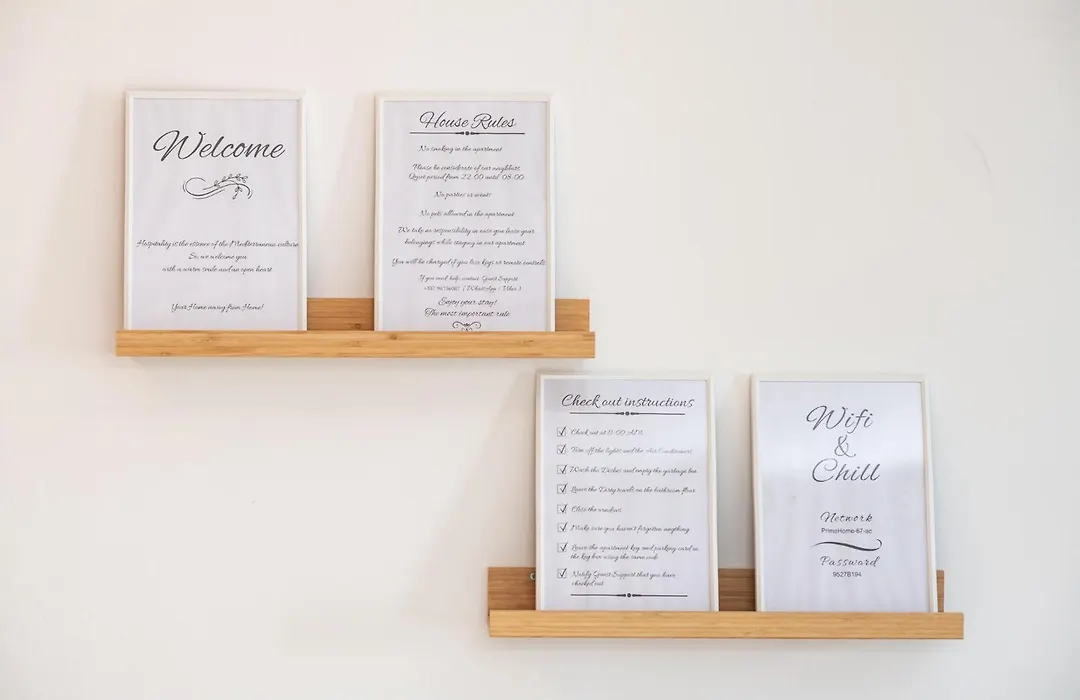 Welcome
Hospitality is the essence of the Mediterranean culture
So, we welcome you
with a warm smile and an open heart
Your Home away from Home!
House Rules
No smoking in the apartment
Please be considerate of our neighbors
Quiet period from 22:00 until 08:00
No parties or events
No pets allowed in the apartment
We take no responsibility in case you loose your
belongings while staying in our apartment
You will be charged if you lose keys or remote controls
If you need help, contact Guest Support
( WhatsApp / Viber )
Enjoy your stay!
The most important rule
Check out instructions
Check out at 11:00 AM
Turn off the lights and the Air Conditioners
Wash the Dishes and empty the garbage bin
Leave the Dirty towels on the bathroom floor
Close the windows
Make sure you haven't forgotten anything
Leave the apartment key and parking card in
the key box using the same code
Notify Guest Support that you have
checked out
Wifi
&
Chill
Network
PrimeHome-67-ac
Password
9527B194